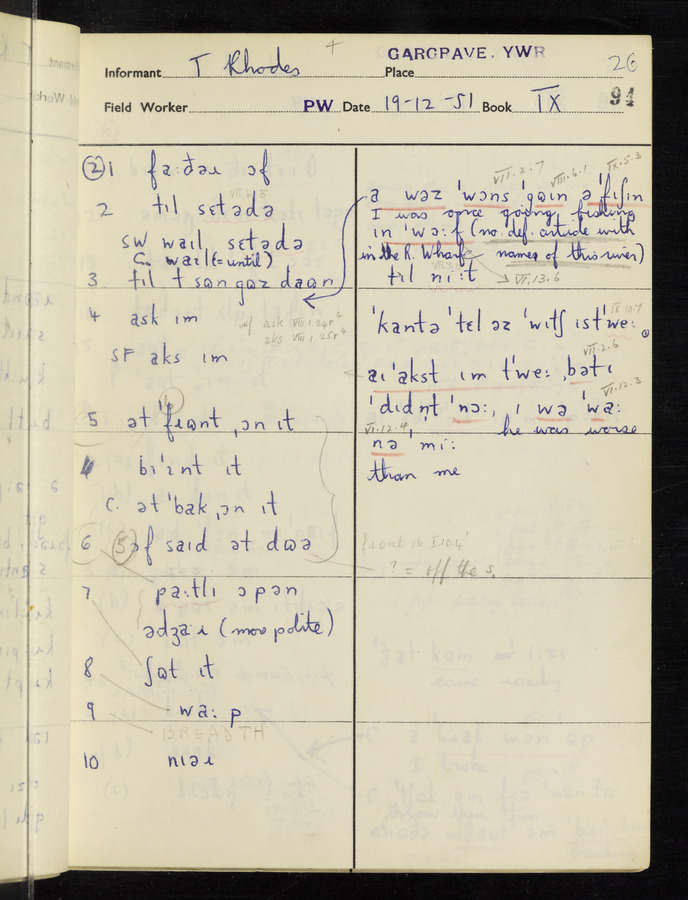 GARGRAVE. YWR
Informant T Rhodes Place 26
Field Worker PW Date 19-12-51 Book IX 94
② 1 fa:ðəɹ ɔf
2 tɪl sɛtədə
SW waɪl, sɛtədə
C. waɪl (= until)
3 tɪl t sɒn gɒz daən
4 ask ɪm
SF aks ɪm
5 ət 'fɹɒnt ,ɔn ɪt
bɪ'ɪnt ɪt
C. ət 'bak ,ɔn ɪt
6 ⑤ ɔf saɪd ət dʊə
7 pa:tlɪ ɔpən
ədʒa:ɹ (more polite)
8 ʃɒt ɪt
9 wa: p
BREADTH
10 nɪəɹ
VII.2.7 VIII.6.1 IX.5.3
a wəz 'wɔns 'gəɪn ə 'fɪʃɪn
I was once going fishing
ɪn 'wɔ:f (no def. article with
in the R. Wharfe names of this river)
tɪl ni:t VI.13.6
'kantə 'tɛl əz 'wɪtʃ ɪst 'we:
aɪ 'akst ɪm t'we:, bət ɪ
VII.2.6
'dɪdn̩t 'nɔ:, ɪ wə 'wa:
VI.12.3
VI.12.4 he was worse
nə mi:
than me
front ib I.10.4
? = off the s.